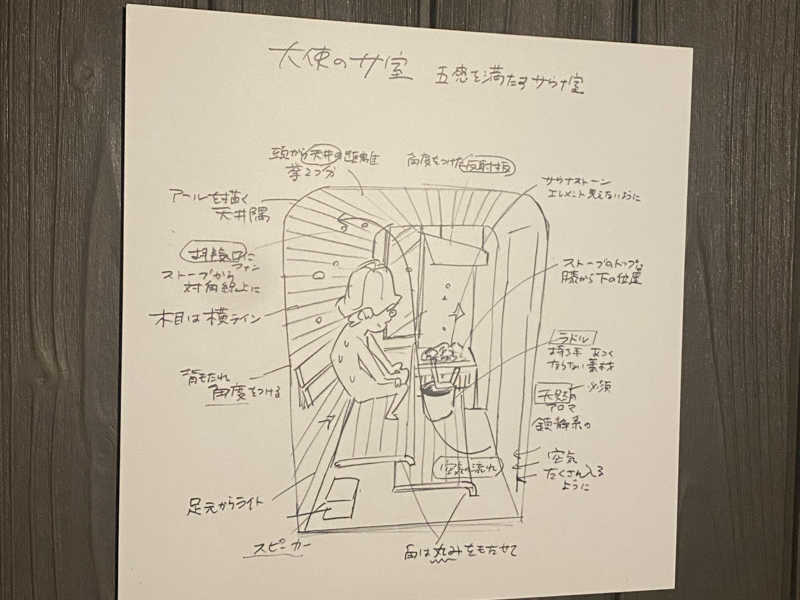 大使のサ室
五感を満たすサウナ室
頭から天井の距離
拳2つ分
角度をつけた反射板
サウナストーン
エレメント見えないように
アールを描く
天井隅
ファン
ストーブから
対角線上に
ストーブのトップは
膝から下の位置
木目は横ライン
ラドル
持つ手 あつく
ならない素材
背もたれ
角度をつける
天然の
必須
アロマ
鎮静系の
空気の流れ
空気
たくさん入る
ように
足元からライト
スピーカー
角は丸みをもたせて